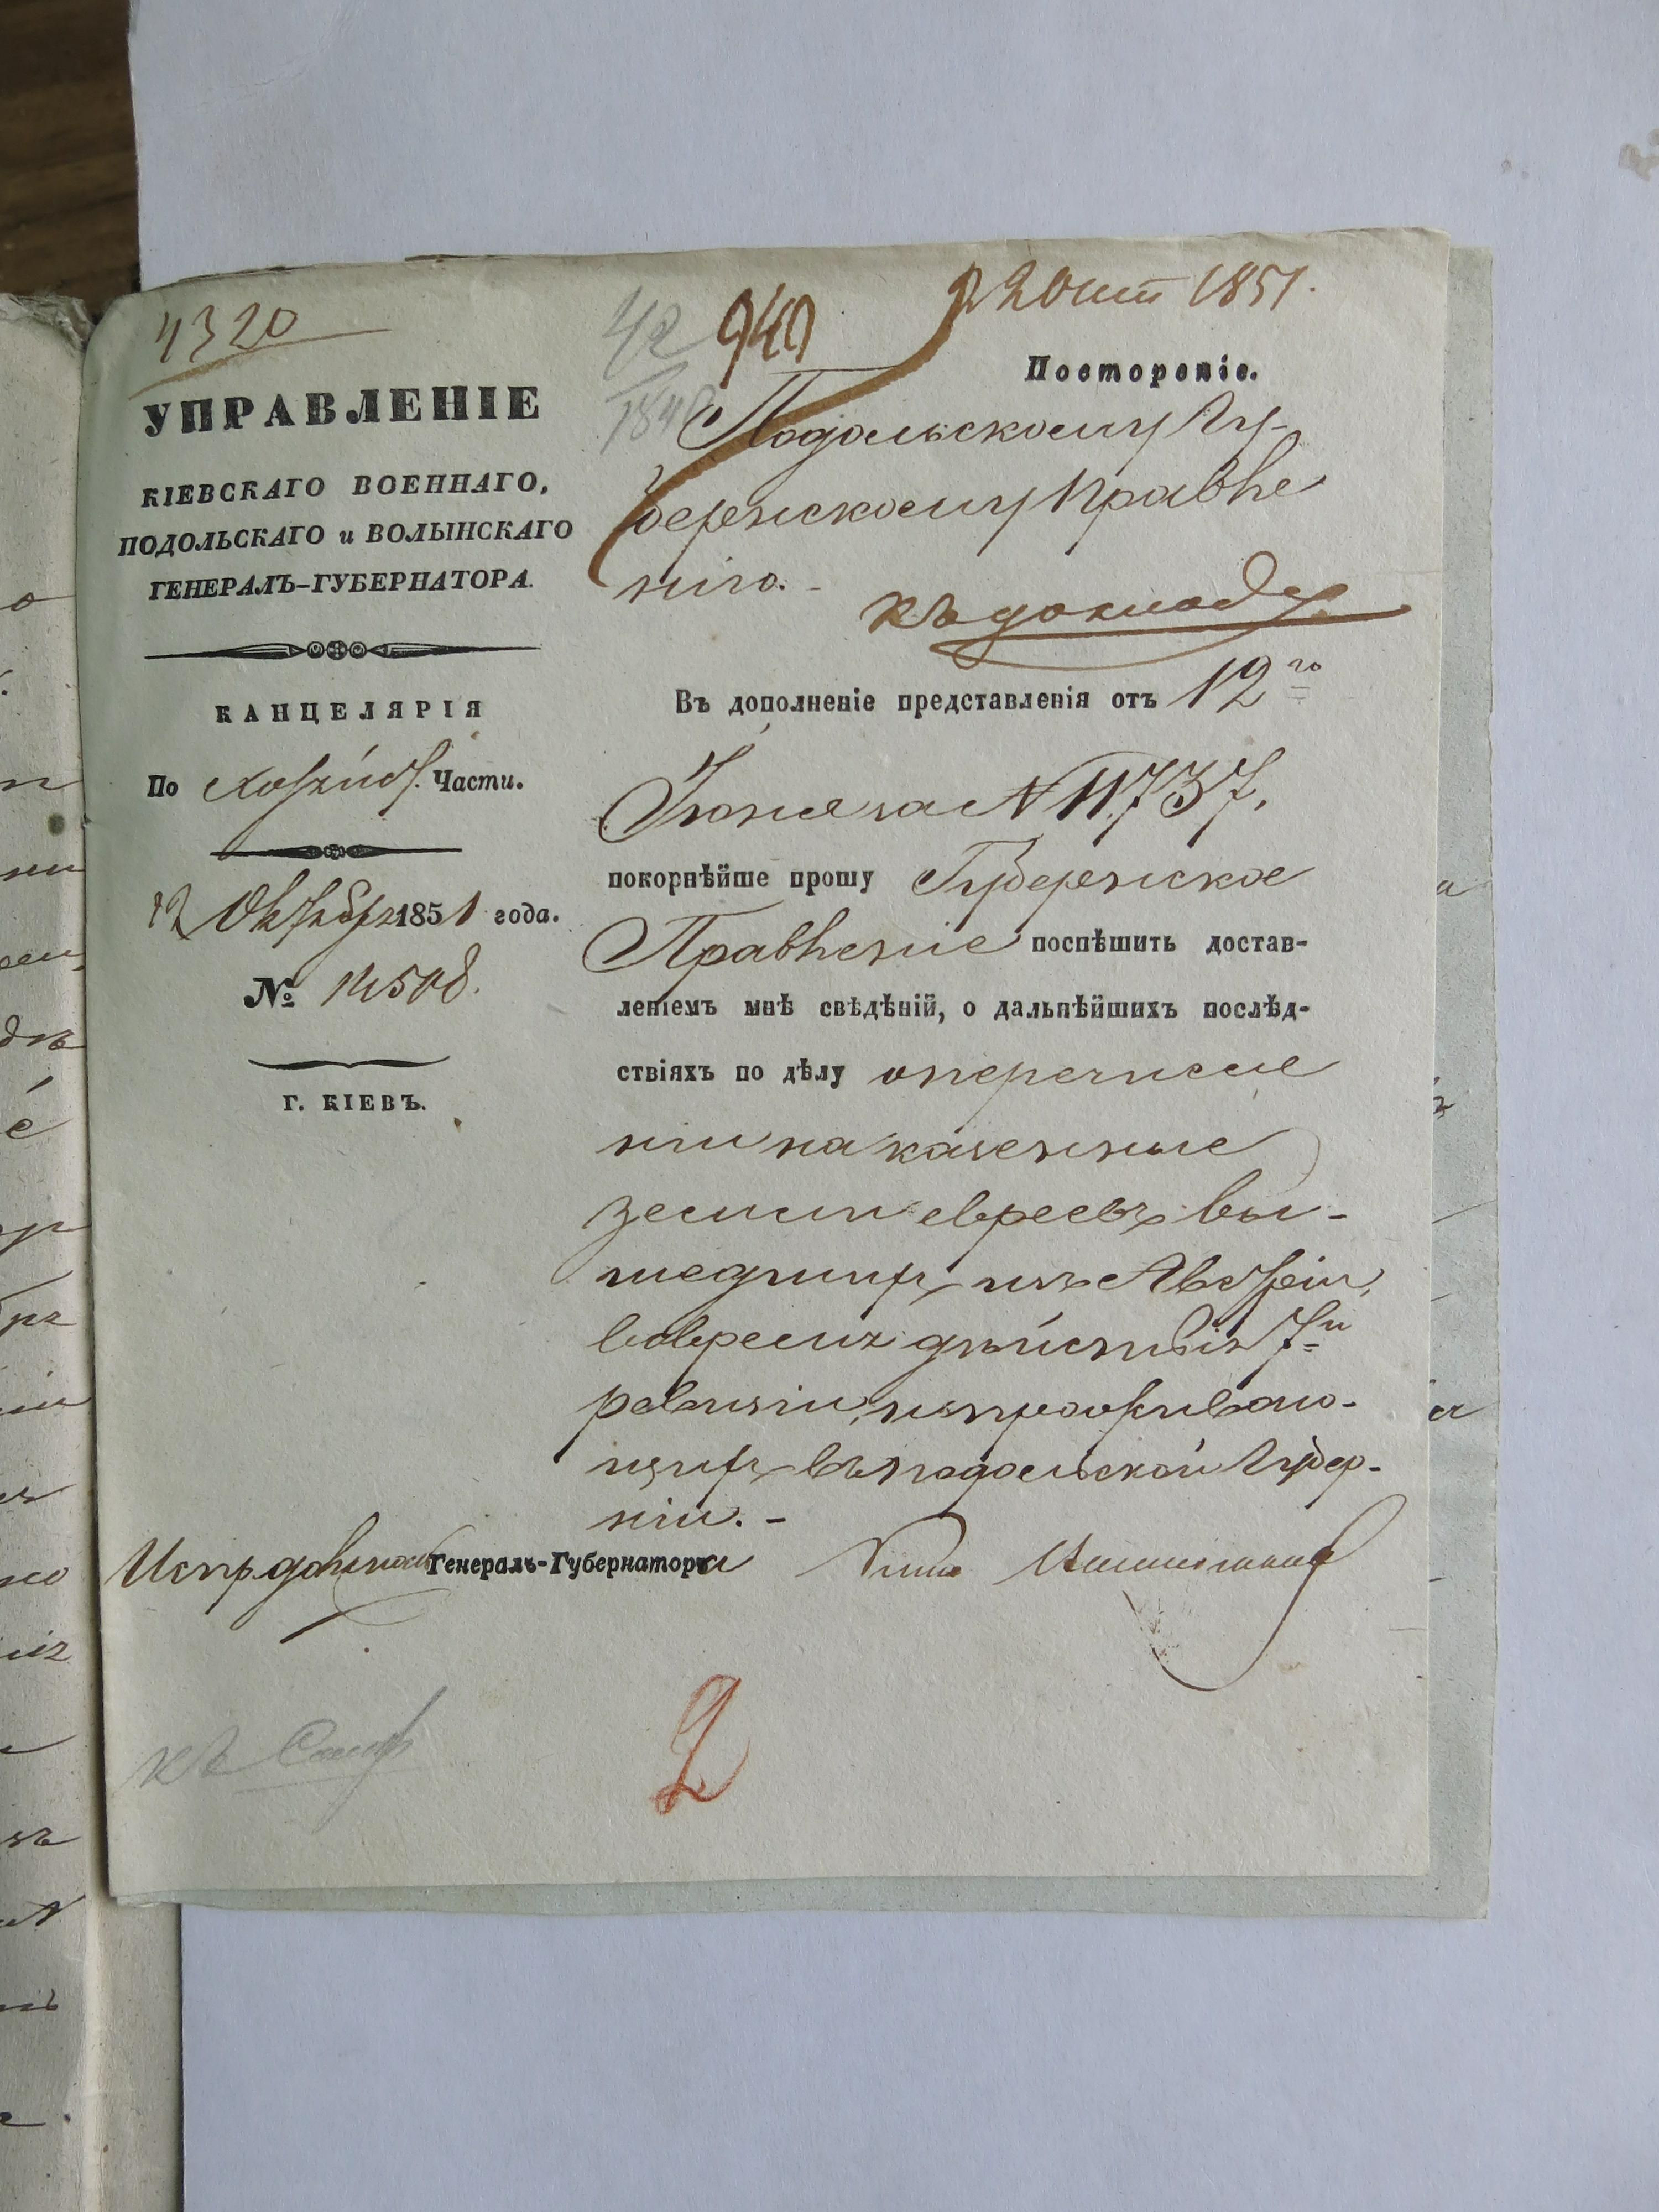 4320
940
22 Окт 1851.
УПРАВЛЕНІЕ
КІЕВСКАГО ВОЕННАГО,
ПОДОЛЬСКАГО и ВОЛЫНСКАГО
ГЕНЕРАЛЪ-ГУБЕРНАТОРА.
КАНЦЕЛЯРІЯ
По Части.
12 Октября 1851 года.
№
Г. КІЕВЪ.
Повтореніе.
Подольскому Гу-
бернскому Правле
нію.-
къ докладу
Въ дополненіе представленія отъ 12го
Іюня за N 11737,
покорнѣйше прошу Губернское
Правленіе поспѣшить достав-
леніемъ мнѣ свѣдѣній, о дальнѣйшихъ послѣд-
ствіяхъ по дѣлу о перечисле
ніи на казенные
земли евреевъ вы-
шедшихъ изъ Австріи,
вовремя дѣйствія 7й
ревизіи, и проживаю-
щихъ въ Подольской Губер-
ніи.-
Испр. должность Генералъ-Губернатора
къ
2